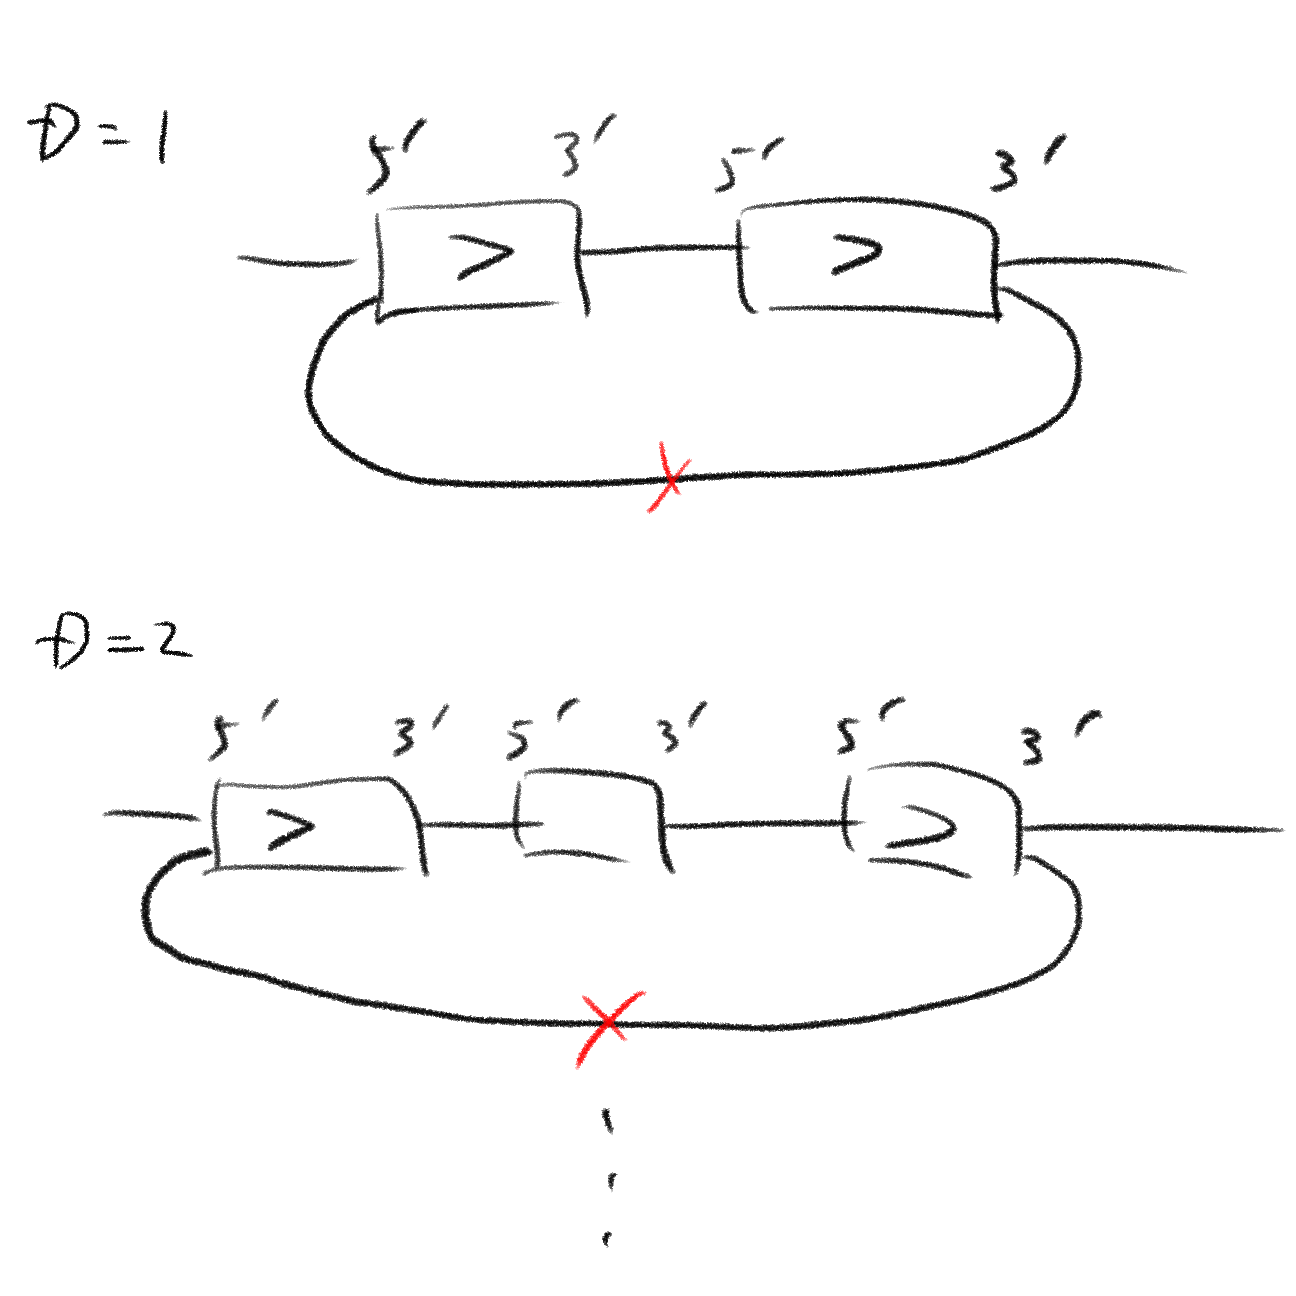 D = 1
5' 3' 5' 3'
> >
D = 2
5' 3' 5' 3' 5' 3'
> >